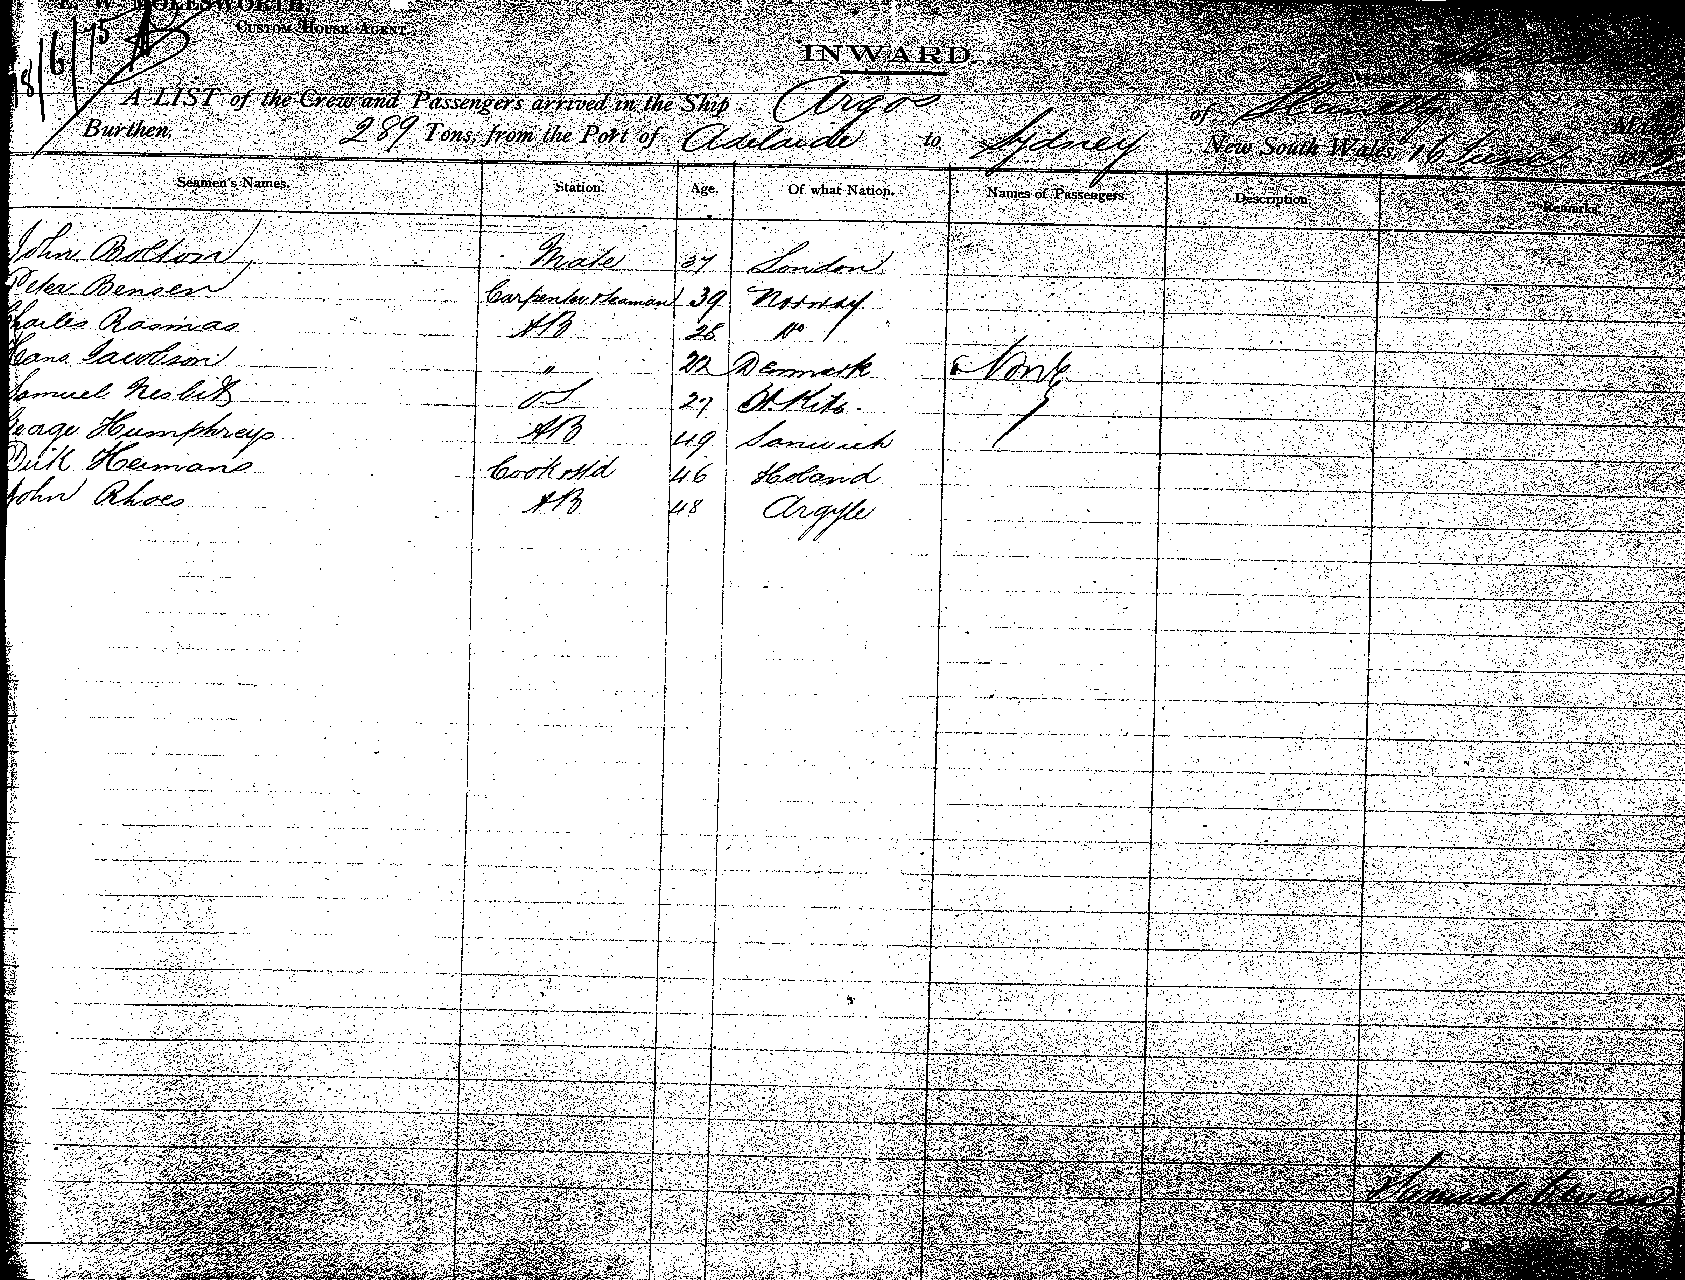 E. W. MOLESWORTH,
CUSTOM HOUSE AGENT.
18/6/75
INWARD.
A LIST of the Crew and Passengers arrived in the Ship Argos of
Burthen, 289 Tons, from the Port of Adelaide to Sydney New South Wales 16 June
Seamen's Names. Station. Age. Of what Nation. Names of Passengers. Description. Remarks.
John Bolton Mate 37 London
Peter Bensen Carpenter & Seaman 39 Norway
Charles Rasmas AB 28 Do
Hans Jacobson " 22 Denmark None
Samuel Nesbitt OS 27 St Kits.
George Humphreys AB 49
Dirk Hermans Cook & Std 46 Holand
John Rhoes AB 48 Argyle
Samuel